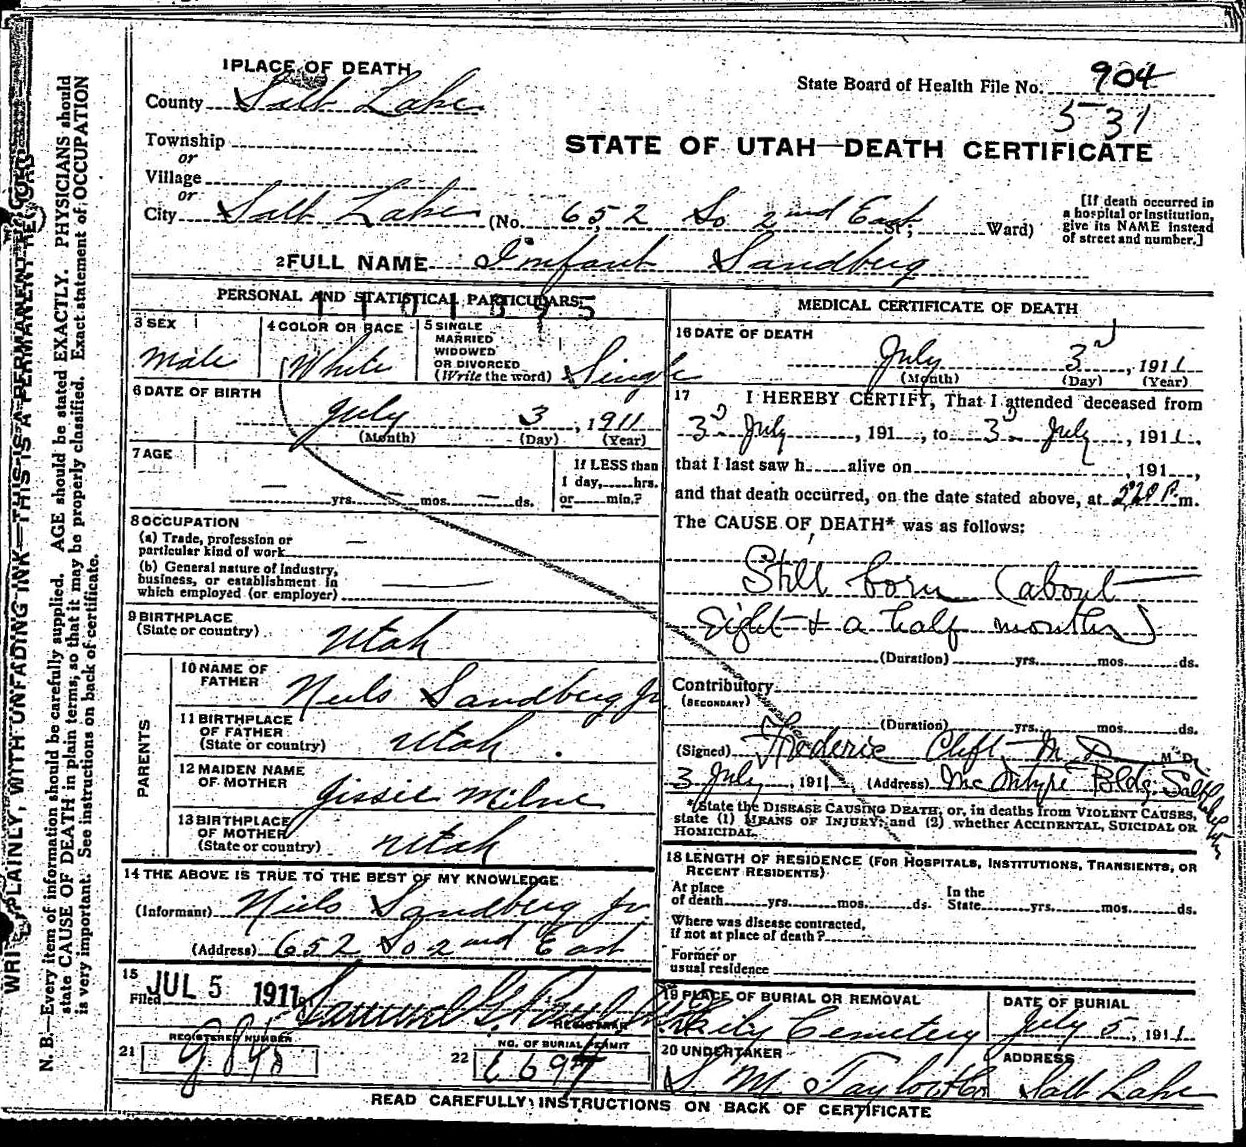 WRITE PLAINLY, WITH UNFADING INK—THIS IS A PERMANENT RECORD
N. B.—Every item of information should be carefully supplied. AGE should be stated EXACTLY. PHYSICIANS should
state CAUSE OF DEATH in plain terms, so that it may be properly classified. Exact statement of OCCUPATION
is very important. See instructions on back of certificate.
1 PLACE OF DEATH
County Salt Lake
State Board of Health File No. 904
531
Township
or
Village
or
STATE OF UTAH—DEATH CERTIFICATE
City Salt Lake (No. 652 So 2nd East St; Ward)
[If death occurred in
a hospital or institution,
give its NAME instead
of street and number.]
2 FULL NAME Infant Sandberg
PERSONAL AND STATISTICAL PARTICULARS
3 SEX
Male
4 COLOR OR RACE
White
5 SINGLE
MARRIED
WIDOWED
OR DIVORCED
(Write the word) Single
6 DATE OF BIRTH
July 3, 1911
(Month) (Day) (Year)
7 AGE
— yrs. — mos. — ds.
If LESS than
1 day, hrs.
or min.?
8 OCCUPATION
(a) Trade, profession or
particular kind of work —
(b) General nature of industry,
business, or establishment in
which employed (or employer) —
9 BIRTHPLACE
(State or country) Utah
PARENTS
10 NAME OF
FATHER Niels Sandberg Jr
11 BIRTHPLACE
OF FATHER
(State or country) Utah.
12 MAIDEN NAME
OF MOTHER Jissie Milne
13 BIRTHPLACE
OF MOTHER
(State or country) Utah
14 THE ABOVE IS TRUE TO THE BEST OF MY KNOWLEDGE
(Informant) Niels Sandberg Jr.
(Address) 652 So 2nd East
15
Filed JUL 5 1911 Samuel G. Paul
REGISTRAR
REGISTERED NUMBER
21 9848
NO. OF BURIAL PERMIT
22
MEDICAL CERTIFICATE OF DEATH
16 DATE OF DEATH
July 3d, 1911
(Month) (Day) (Year)
17 I HEREBY CERTIFY, That I attended deceased from
3d July, 191 , to 3d July, 1911.
that I last saw h alive on , 191 ,
and that death occurred, on the date stated above, at P m.
The CAUSE OF DEATH* was as follows:
Still born (about
Eight & a half months)
(Duration) yrs. mos. ds.
Contributory
(SECONDARY)
(Duration) yrs. mos. ds.
(Signed) Frederic Clift M.D. M.D.
3 July, 1911 (Address) McIntyre Bldg. Salt Lake City
*State the DISEASE CAUSING DEATH, or, in deaths from VIOLENT CAUSES,
state (1) MEANS OF INJURY; and (2) whether ACCIDENTAL, SUICIDAL OR
HOMICIDAL.
18 LENGTH OF RESIDENCE (FOR HOSPITALS, INSTITUTIONS, TRANSIENTS, OR
RECENT RESIDENTS)
At place
of death yrs. mos. ds.
In the
State yrs. mos. ds.
Where was disease contracted,
If not at place of death?
Former or
usual residence
19 PLACE OF BURIAL OR REMOVAL
City Cemetery
DATE OF BURIAL
July 5, 1911
20 UNDERTAKER
S. M. Taylor & Co
ADDRESS
Salt Lake
READ CAREFULLY INSTRUCTIONS ON BACK OF CERTIFICATE